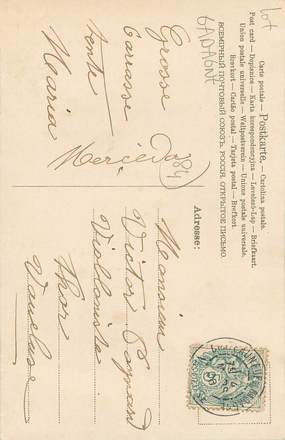 Lot
GADAGNE
Carte postale — Postkarte. — Cartolina postale.
Post card — Dopisnice — Karta korespondencyjna — Levelező-Lap — Briefkaart.
Union postale universelle — Weltpostverein — Unione postale universale.
Brevkort — Cartão postal — Tarjeta postal — Brefkort.
ВСЕМІРНЫЙ ПОЧТОВЫЙ СОЮЗЪ. РОССІЯ. ОТКРЫТОЕ ПИСЬМО.
Grosse
Carcasse
Vente
Maria
Mercédès
84
Adresse:
Monsieur
Victor
Violoniste
Thor
Vaucluse